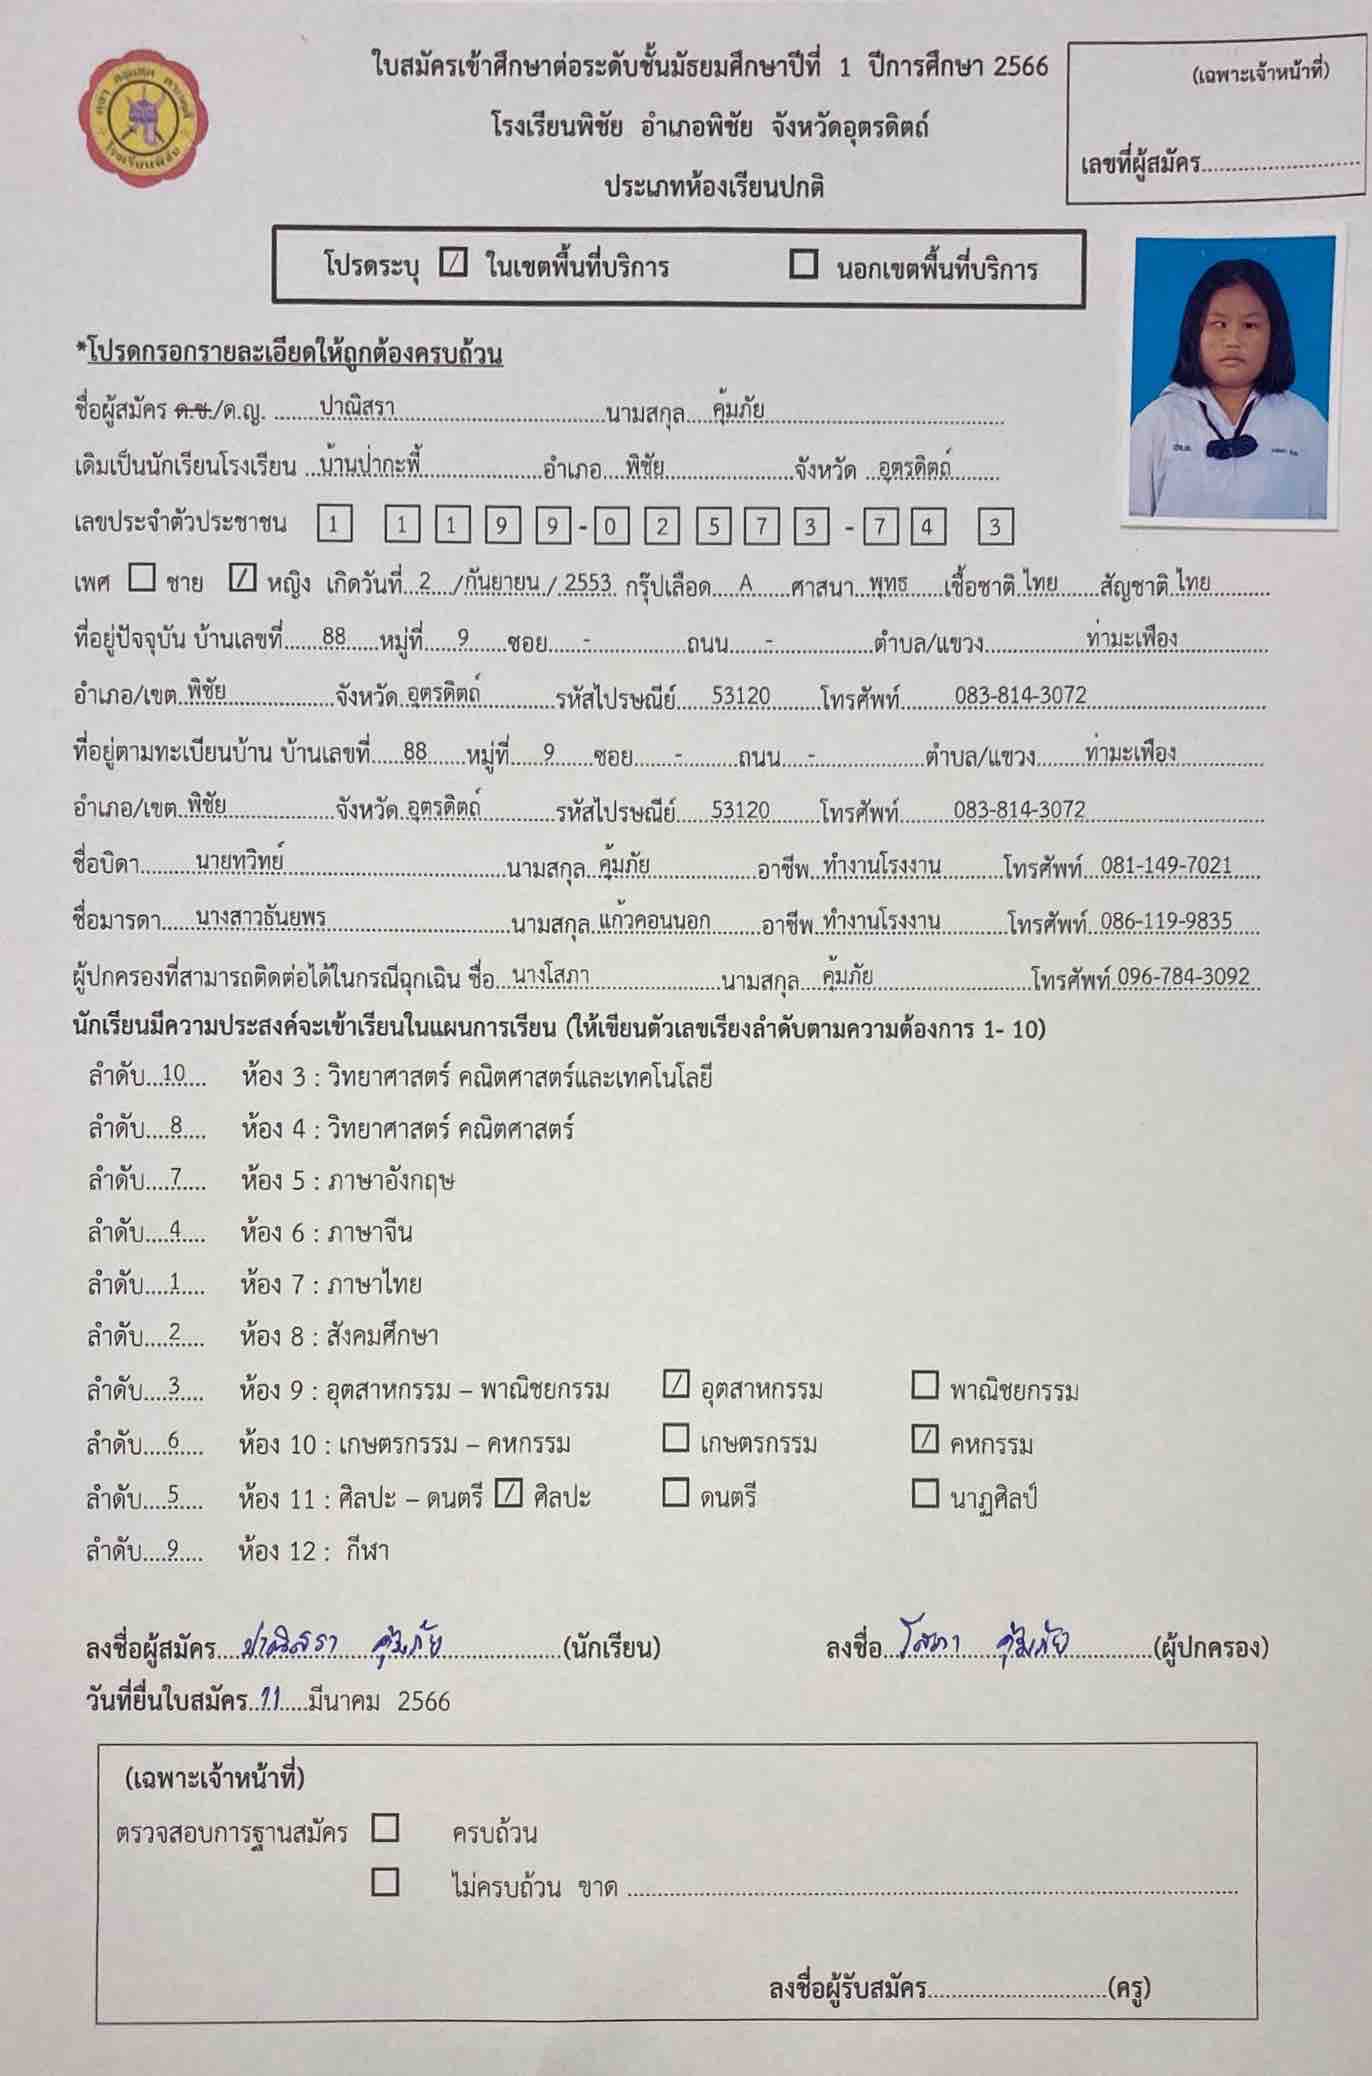 ใบสมัครเข้าศึกษาต่อระดับชั้นมัธยมศึกษาปีที่ 1 ปีการศึกษา 2566
(เฉพาะเจ้าหน้าที่)
โรงเรียนพิชัย อำเภอพิชัย จังหวัดอุตรดิตถ์
เลขที่ผู้สมัคร
ประเภทห้องเรียนปกติ
โปรดระบุ ☑ ในเขตพื้นที่บริการ ☐ นอกเขตพื้นที่บริการ
*โปรดกรอกรายละเอียดให้ถูกต้องครบถ้วน
ชื่อผู้สมัคร ด.ช./ด.ญ. ปาณิสรา นามสกุล คุ้มภัย
เดิมเป็นนักเรียนโรงเรียน บ้านป่ากะพี้ อำเภอ พิชัย จังหวัด อุตรดิตถ์
เลขประจำตัวประชาชน 1 1 1 9 9 - 0 2 5 7 3 - 7 4 3
เพศ ☐ ชาย ☑ หญิง เกิดวันที่ 2 /กันยายน / 2553 กรุ๊ปเลือด A ศาสนา พุทธ เชื้อชาติ ไทย สัญชาติ ไทย
ที่อยู่ปัจจุบัน บ้านเลขที่ 88 หมู่ที่ 9 ซอย - ถนน - ตำบล/แขวง ท่ามะเฟือง
อำเภอ/เขต พิชัย จังหวัด อุตรดิตถ์ รหัสไปรษณีย์ 53120 โทรศัพท์ 083-814-3072
ที่อยู่ตามทะเบียนบ้าน บ้านเลขที่ 88 หมู่ที่ 9 ซอย - ถนน - ตำบล/แขวง ท่ามะเฟือง
อำเภอ/เขต พิชัย จังหวัด อุตรดิตถ์ รหัสไปรษณีย์ 53120 โทรศัพท์ 083-814-3072
ชื่อบิดา นายทวิทย์ นามสกุล คุ้มภัย อาชีพ ทำงานโรงงาน โทรศัพท์ 081-149-7021
ชื่อมารดา นางสาวธันยพร นามสกุล แก้วคอนนอก อาชีพ ทำงานโรงงาน โทรศัพท์ 086-119-9835
ผู้ปกครองที่สามารถติดต่อได้ในกรณีฉุกเฉิน ชื่อ นางโสภา นามสกุล คุ้มภัย โทรศัพท์ 096-784-3092
นักเรียนมีความประสงค์จะเข้าเรียนในแผนการเรียน (ให้เขียนตัวเลขเรียงลำดับตามความต้องการ 1- 10)
ลำดับ 10 ห้อง 3 : วิทยาศาสตร์ คณิตศาสตร์และเทคโนโลยี
ลำดับ 8 ห้อง 4 : วิทยาศาสตร์ คณิตศาสตร์
ลำดับ 7 ห้อง 5 : ภาษาอังกฤษ
ลำดับ 4 ห้อง 6 : ภาษาจีน
ลำดับ 1 ห้อง 7 : ภาษาไทย
ลำดับ 2 ห้อง 8 : สังคมศึกษา
ลำดับ 3 ห้อง 9 : อุตสาหกรรม – พาณิชยกรรม ☑ อุตสาหกรรม ☐ พาณิชยกรรม
ลำดับ 6 ห้อง 10 : เกษตรกรรม – คหกรรม ☐ เกษตรกรรม ☑ คหกรรม
ลำดับ 5 ห้อง 11 : ศิลปะ – ดนตรี ☑ ศิลปะ ☐ ดนตรี ☐ นาฏศิลป์
ลำดับ 9 ห้อง 12 : กีฬา
ลงชื่อผู้สมัคร ปาณิสรา คุ้มภัย (นักเรียน) ลงชื่อ โสภา คุ้มภัย (ผู้ปกครอง)
วันที่ยื่นใบสมัคร 11 มีนาคม 2566
(เฉพาะเจ้าหน้าที่)
ตรวจสอบการฐานสมัคร ☐ ครบถ้วน
☐ ไม่ครบถ้วน ขาด
ลงชื่อผู้รับสมัคร (ครู)